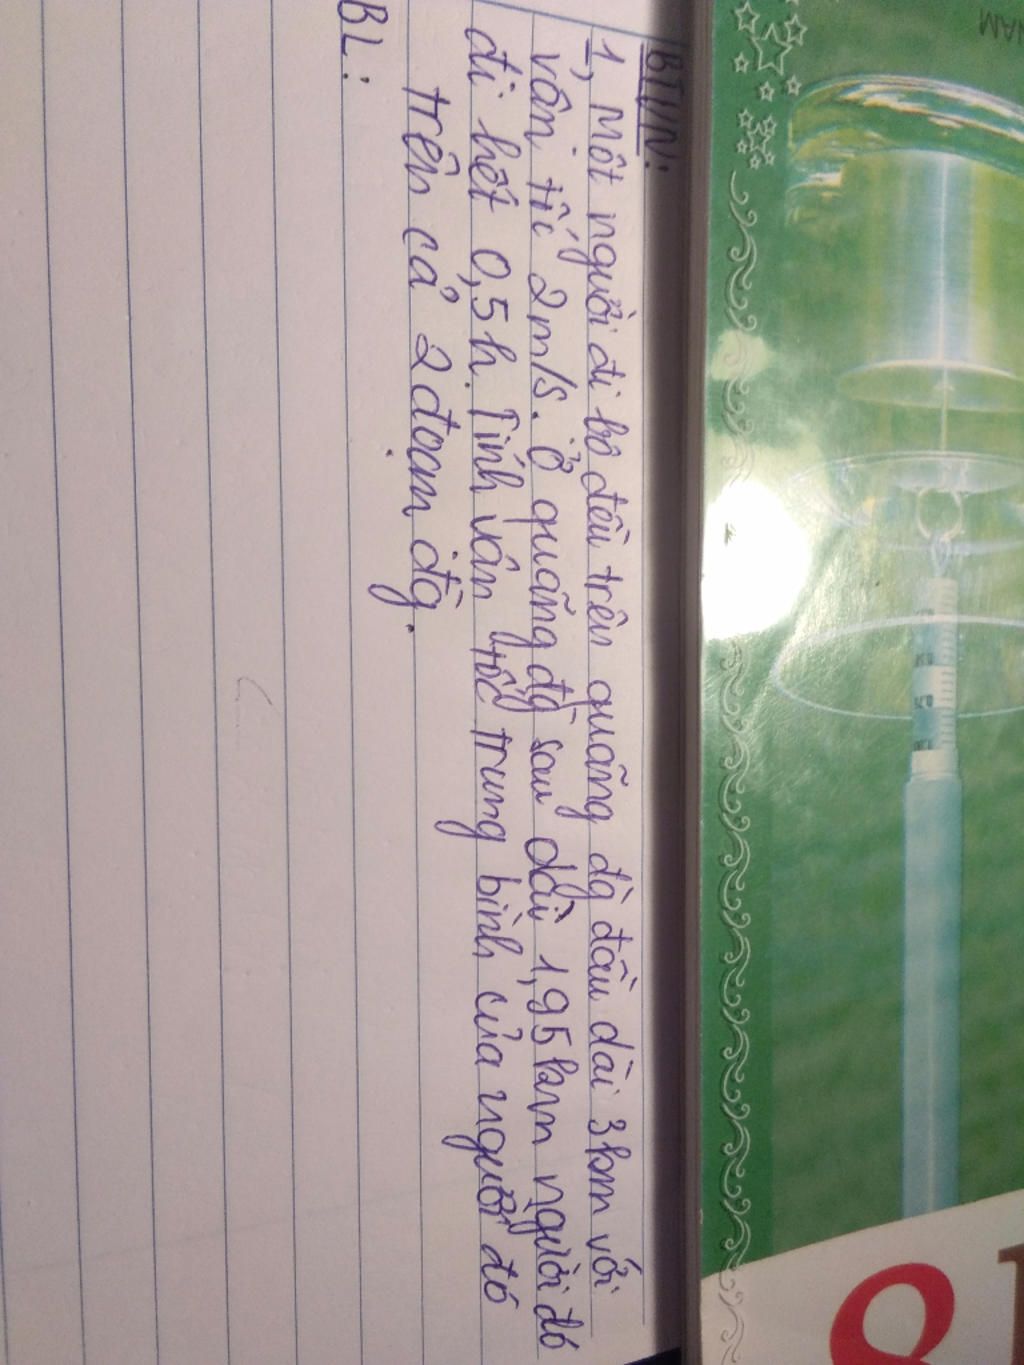 BTVN:
1, Một người đi bộ đều trên quãng đg đầu dài 3km với
vận tốc 2m/s. Ở quãng đg sau dài 1,95km người đó
đi hết 0,5h. Tính vận tốc trung bình của người đó
trên cả 2 đoạn đg.
BL:
NAM
8